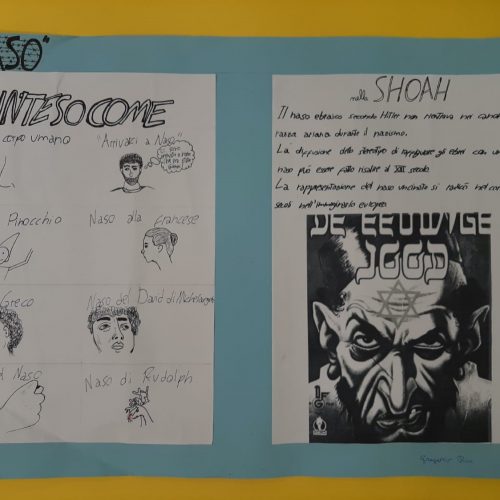 ASO"
INTESO COME
corpo umano
"Arrivarci a Naso"
Pinocchio
Naso alla Francese
Greco
Naso del David di Michelangelo
Naso
Naso di Rudolph
nella SHOAH
Il naso ebraico secondo Hitler non rientrava nei canoni
razza ariana durante il nazismo.
La diffusione dello stereotipo di raffigurare gli ebrei con un
naso può essere fatto risalire al XIII secolo.
La rappresentazione del naso uncinato si radicò nel
secoli nell'immaginario europeo.
DE EEUWIGE
JOOD